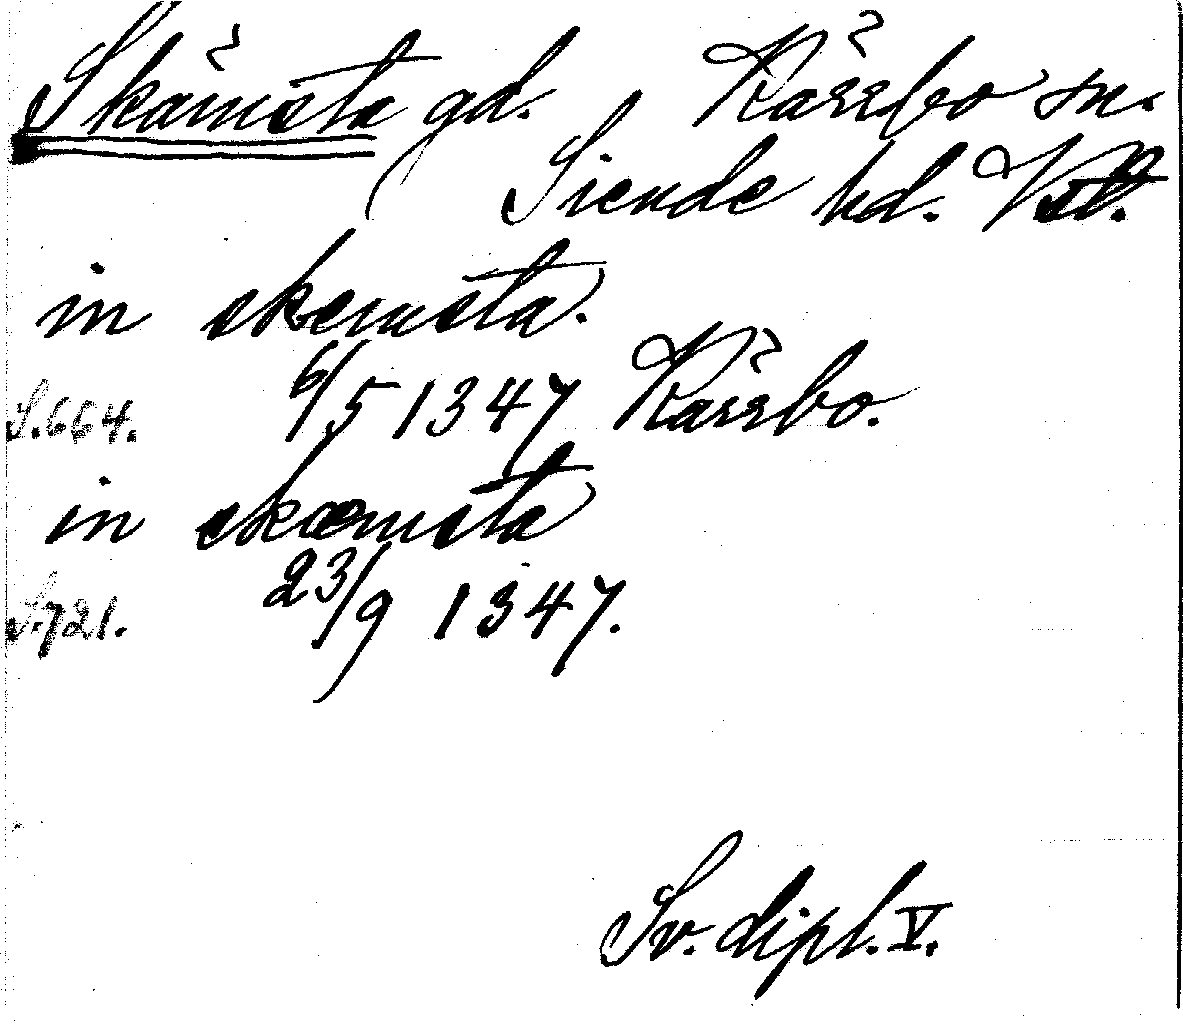 Skämsta gd. Kärrbo sn.
Siende hd. Vstl.
in skemsta.
S. 664. 6/5 1347 Kärrbo.
in skæmsta
S. 721. 23/9 1347.
Sv. dipl. V.